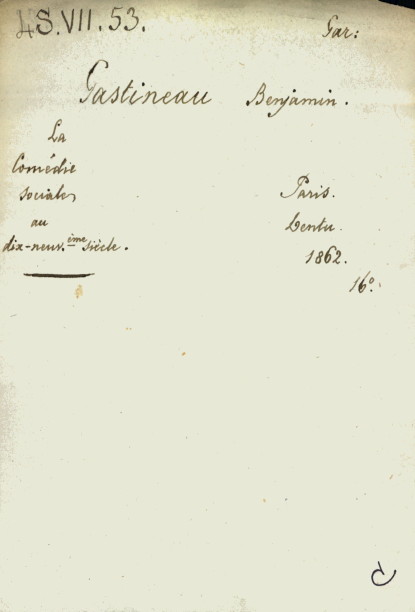 4S.VII.53.
Gar:
Gastineau Benjamin.
La
Comédie
sociale,
au
dix-neuv.ème siècle.
Paris.
Dentu.
1862.
16º.